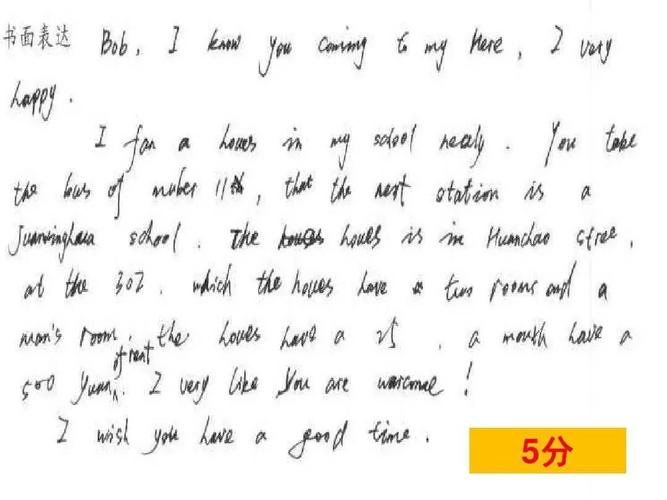 书面表达 Bob, I know you coming to my Here, I very
happy.
I fan a houes in my school nealy. You take
the bus of nuber 11th, that the next station is a
Juanxinghaua school. The houes is in Huanchao stree,
at the 302. which the houes have a two rooms and a
man's room. the houes have a 25, a month have a
of rent
500 Yuan. I very like you are warcome!
I wish you have a good time.
5分